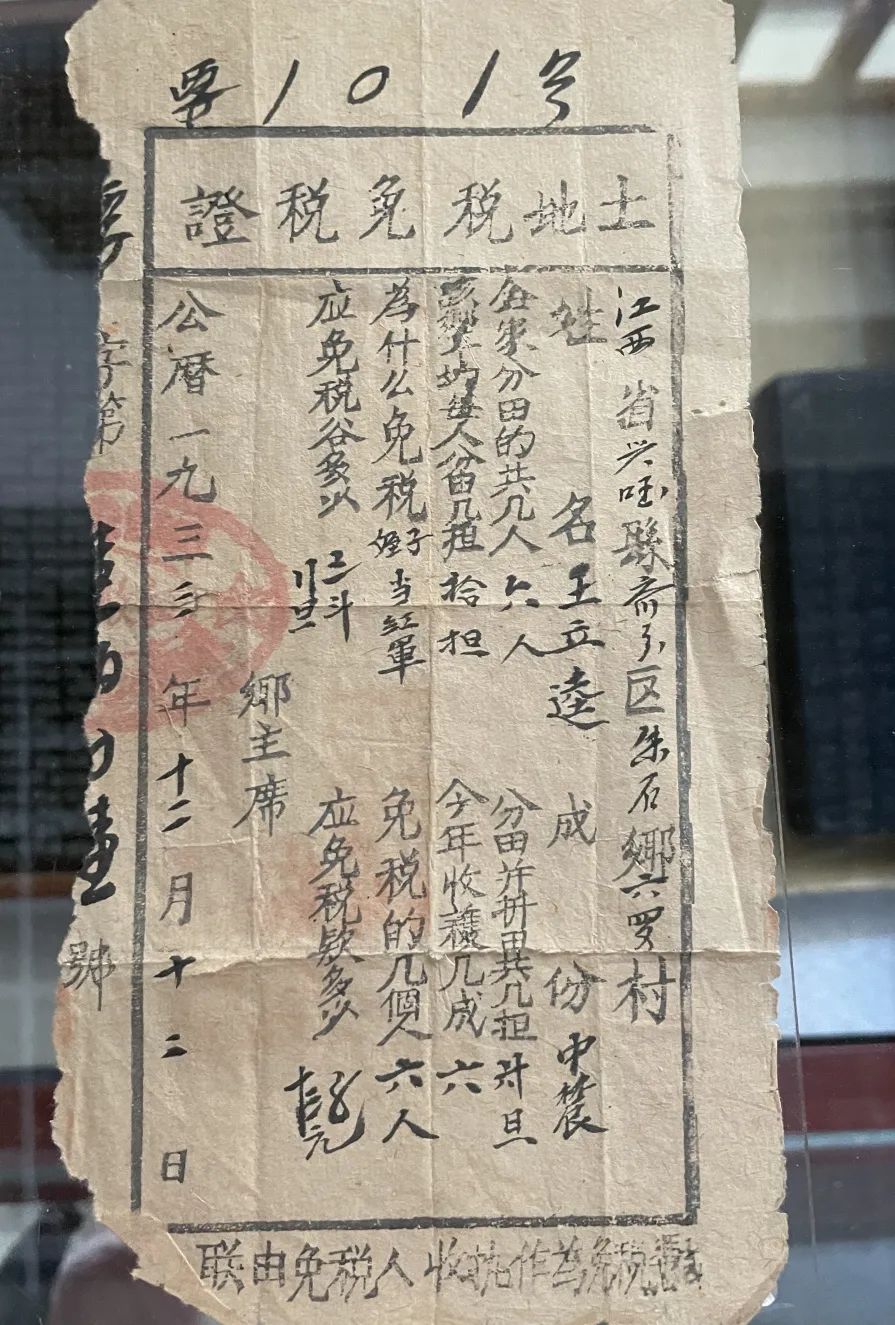 1 0 1 号
土地税免税證
江西省兴国縣区朱石鄉六罗村
姓名王立逵 成份中農
每家分田的共几人 六人 分田并拼田共几担 卅旦
該鄉平均每人分田几担 拾担 今年收穫几成 六
為什么免税 姪子当红軍 免税的几個人 六人
应免税谷多少 二斗 应免税欵多少 元
鄉主席
公曆一九三年十二月十二日
字第壹百〇壹號
联由免税人收执作為免税